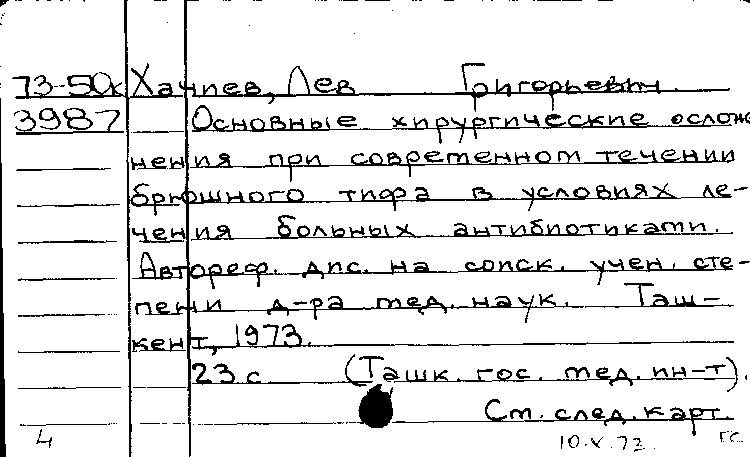 73-50к Хачиев, Лев Григорьевич.
3987 Основные хирургические ослож
нения при современном течении
брюшного тифа в условиях ле-
чения больных антибиотиками.
Автореф. дис. на соиск. учен. сте-
пени д-ра мед. наук. Таш-
кент, 1973.
23 с (Ташк. гос. мед. ин-т).
См. след. карт.
4 10.V.73 ГС